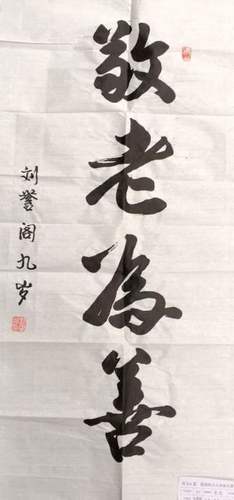 敬老為善
刘誉阁九岁